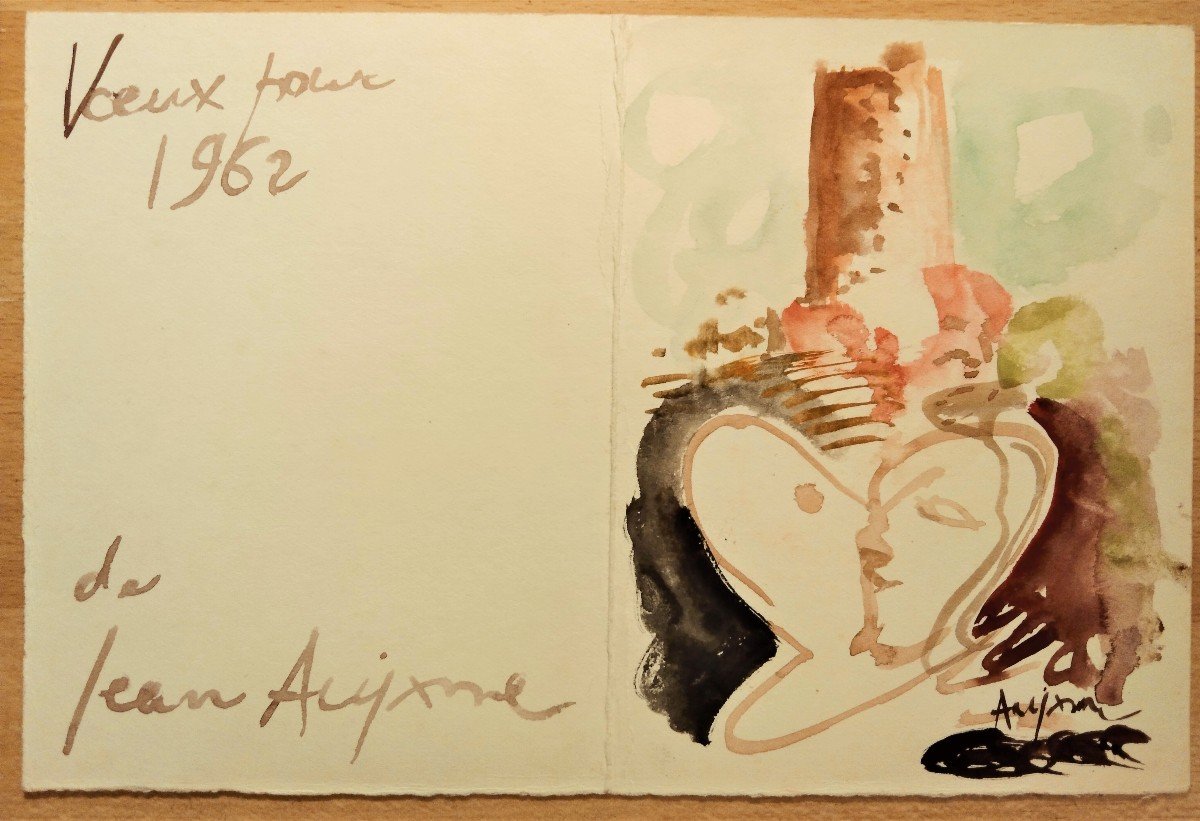 Vœux pour
1962
de
Jean Aujame
Aujame